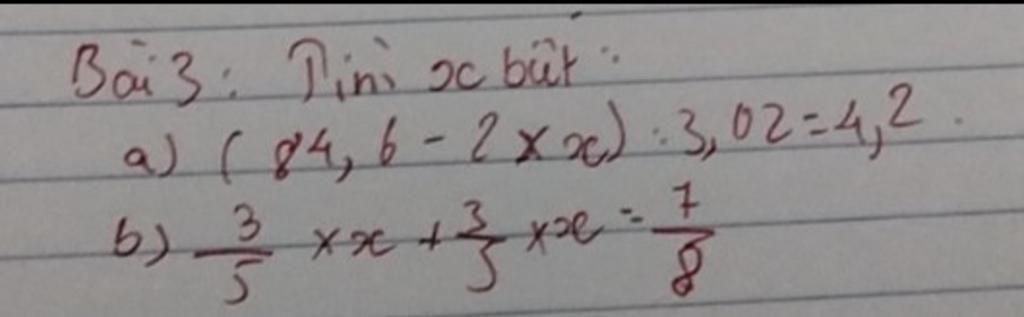 Bài 3: Tìm x biết:
a) (84,6 - 2 × x) : 3,02 = 4,2.
b) 3/5 × x + 3/5 × x = 7/8